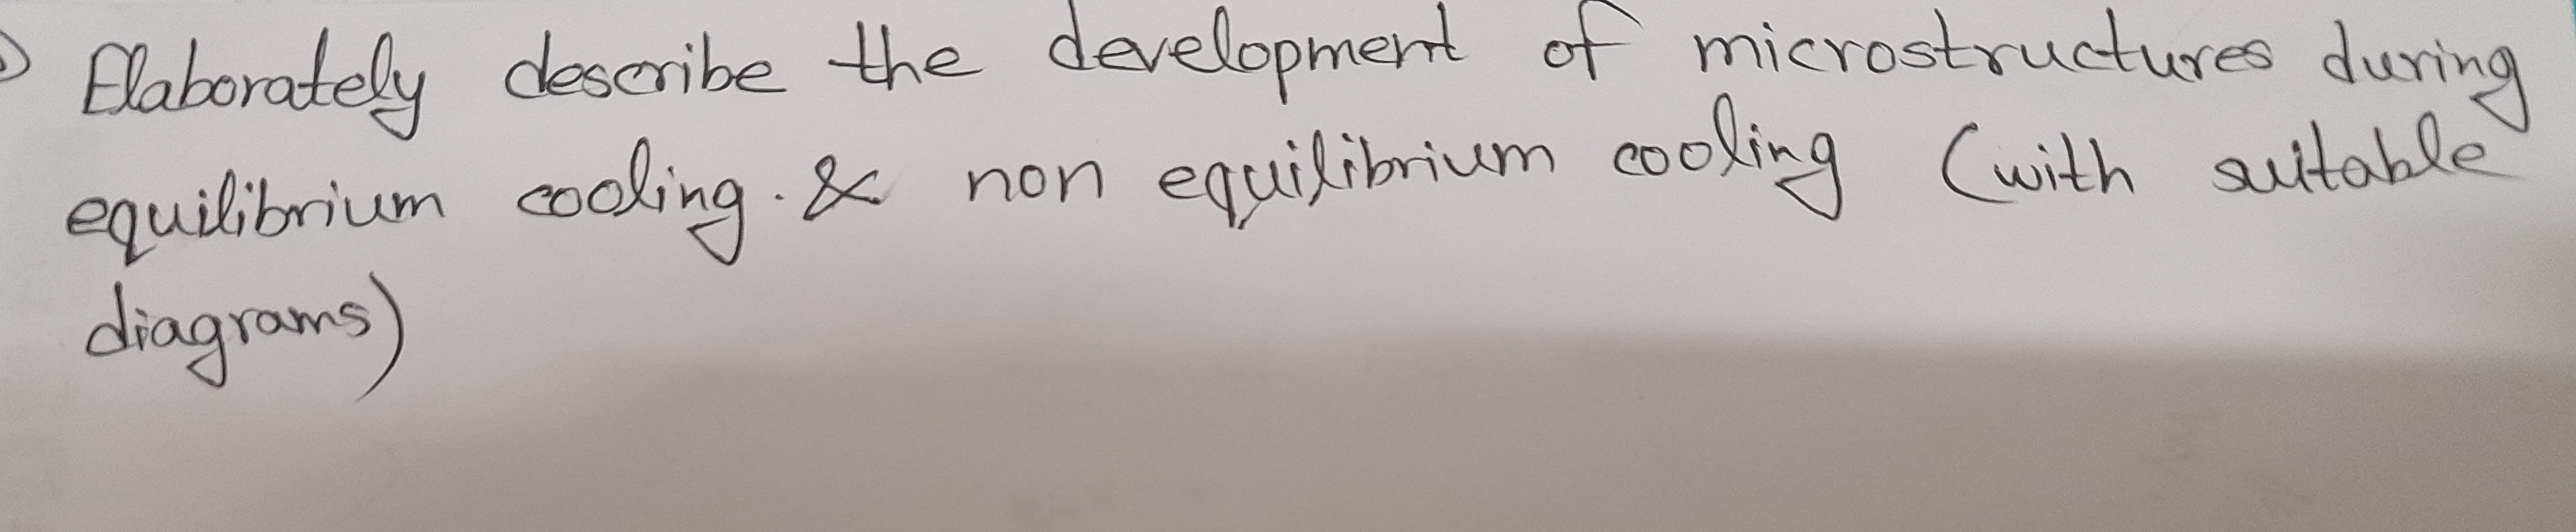 Elaborately describe the development of microstructures during
equilibrium cooling. & non equilibrium cooling (with suitable
diagrams)